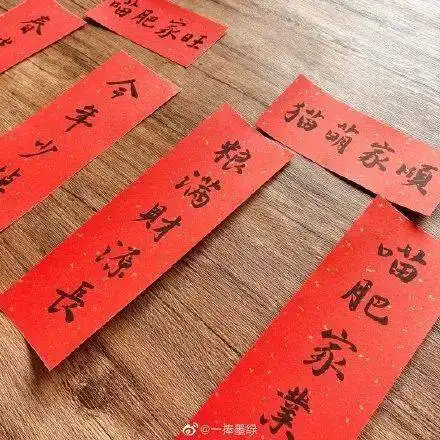 喵肥家旺
春
今年少
粮满财源長
猫萌家顺
喵肥家業
@一捧墨緑